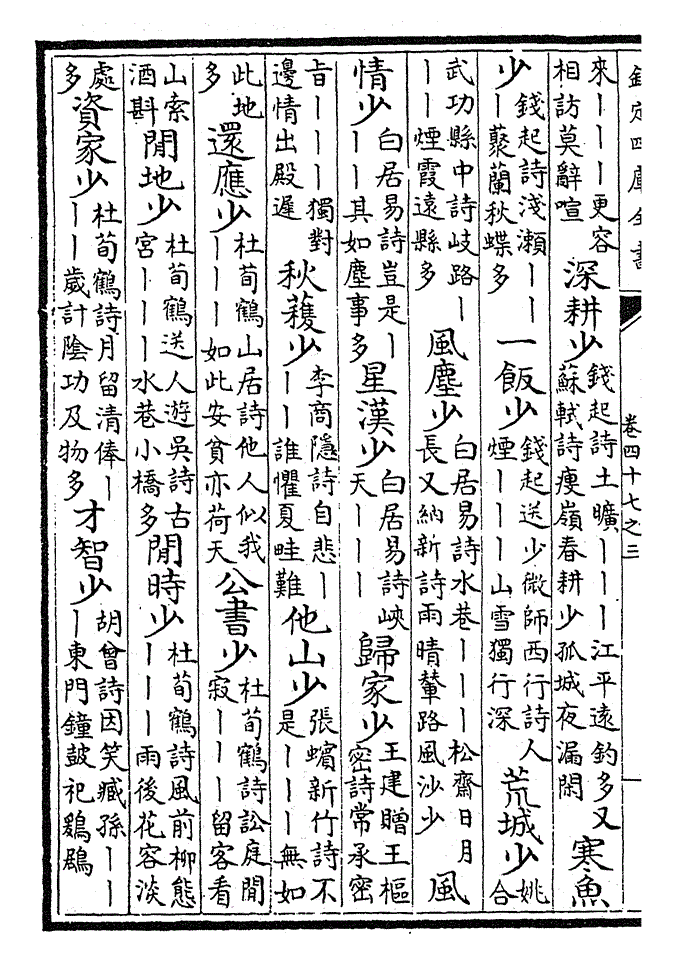 欽定四庫全書 卷四十七之三
來丨丨丨更容相訪莫辭喧 深耕少 錢起詩土曠丨丨丨江平遠釣多又蘇軾詩瘦嶺春耕少孤城夜漏閑 寒魚
少 錢起詩淺瀬丨丨丨蘩蘭秋蝶多 一飯少 錢起送少微師西行詩人煙丨丨丨山雪獨行深 荒城少 姚合
武功縣中詩岐路丨丨丨煙霞遠縣多 風塵少 白居易詩水巷丨丨丨松齋日月長又納新詩雨晴輦路風沙少 風
情少 白居易詩豈是丨丨丨其如塵事多 星漢少 白居易詩峽天丨丨丨 歸家少 王建贈王樞密詩常承密
㫖丨丨丨獨對邊情出殿遲 秋穫少 李商隱詩自悲丨丨丨誰懼夏畦難 他山少 張蠙新竹詩不是丨丨丨無如
此地多 還應少 杜荀鶴山居詩他人似我丨丨丨如此安貧亦荷天 公書少 杜荀鶴詩訟庭閒寂丨丨丨留客看
山索酒斟 閒地少 杜荀鶴送人遊吳詩古宮丨丨丨水巷小橋多 閒時少 杜荀鶴詩風前柳態丨丨丨雨後花容淡
處多 資家少 杜荀鶴詩月留清俸丨丨丨歲計陰功及物多 才智少 胡曾詩因笑臧孫丨丨丨東門鐘鼓祀鶢鶋